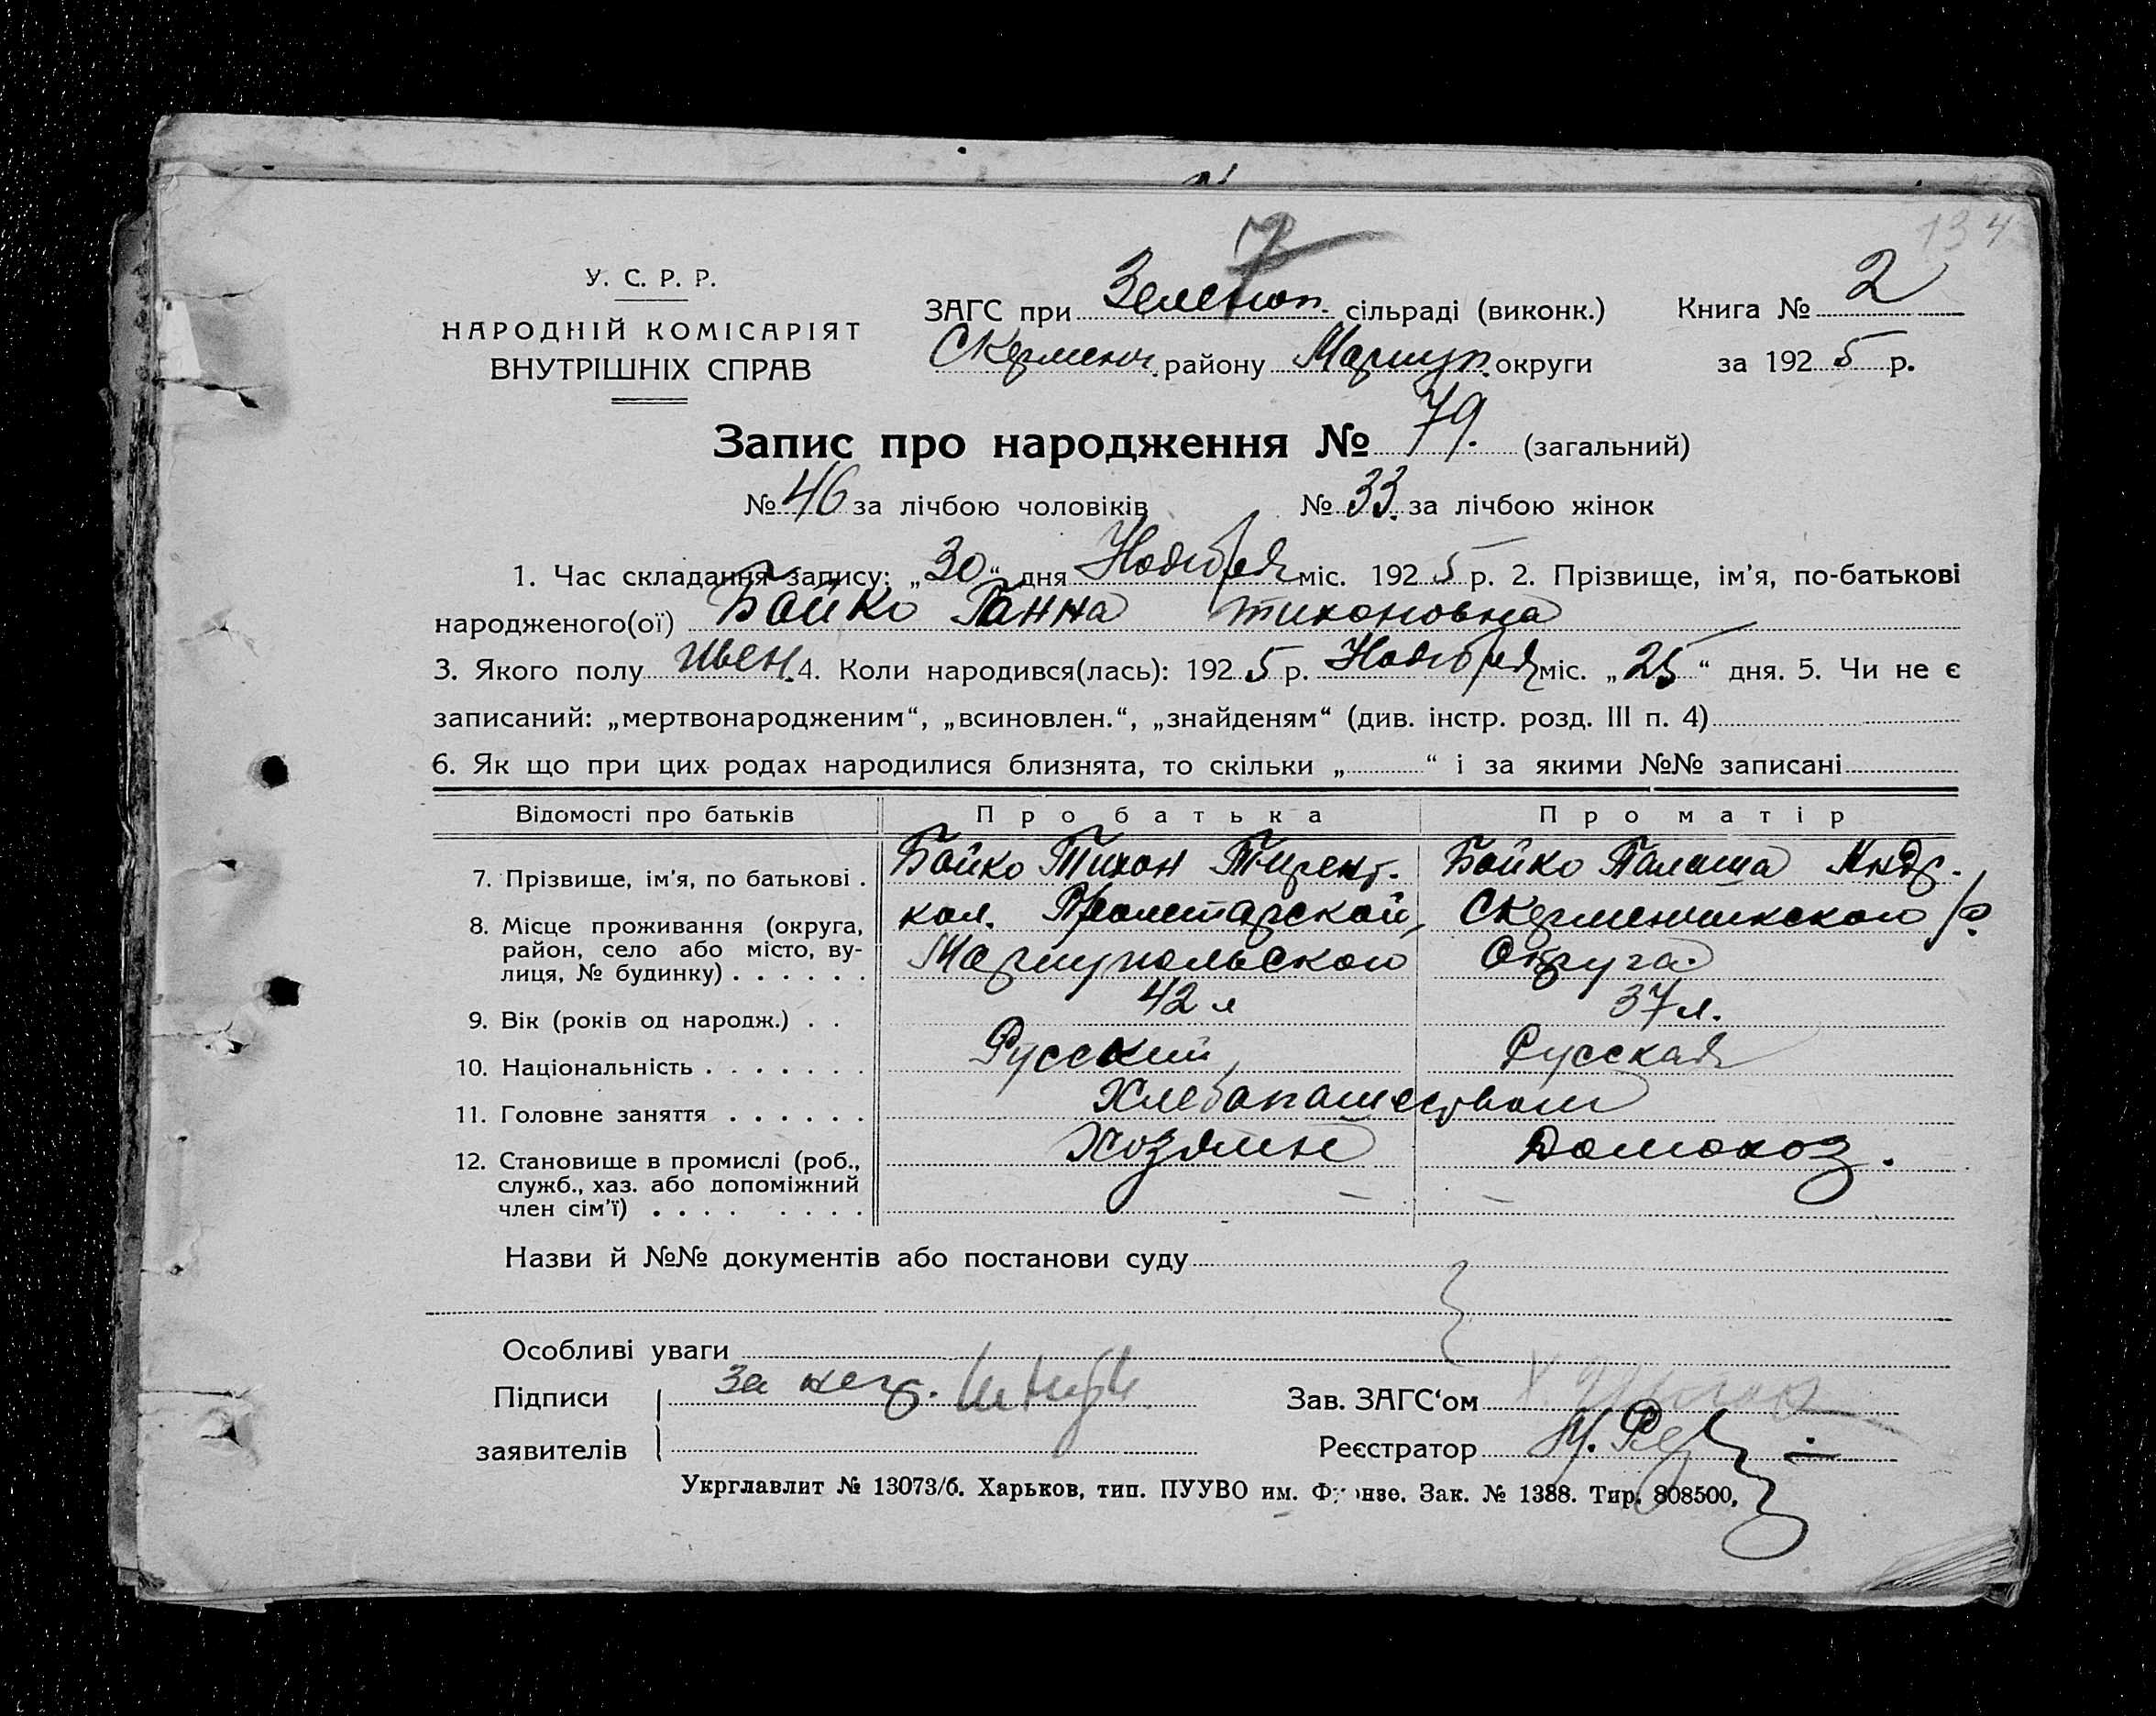 134
7
У. С. Р. Р.
НАРОДНІЙ КОМІСАРІЯТ
ВНУТРІШНІХ СПРАВ
ЗАГС при Зеленоп. сільраді (виконк.) Книга № 2
Скермен. району Мариуп. округи за 1925 р.
Запис про народження № 79. (загальний)
№ 46 за лічбою чоловіків № 33. за лічбою жінок
1. Час складання запису: „30“ дня Ноября міс. 1925 р. 2. Прізвище, ім'я, по-батькові
народженого(ої) Бойко Ганна Тихоновна
3. Якого полу жен. 4. Коли народився(лась): 1925 р. Ноября міс. „25“ дня. 5. Чи не є
записаний: „мертвонародженим“, „всиновлен.“, „знайденям“ (див. інстр. розд. III п. 4)
6. Як що при цих родах народилися близнята, то скільки „ “ і за якими №№ записані
Відомості про батьків Про батька Про матір
7. Прізвище, ім'я, по батькові . Бойко Тихон Бойко Палаша Андр.
8. Місце проживання (округа, кол. Пролетарской, Скерменчикского р.
район, село або місто, ву-
лиця, № будинку) . . . . . . Мариупольского Округа.
9. Вік (років од народж.) . . 42 л 37 л.
10. Національність . . . . . . . Русский Русская
11. Головне заняття . . . . . . Хлебопашеством
12. Становище в промислі (роб., Хозяин Домохоз.
служб., хаз. або допоміжний
член сім'ї) . . . . . . . .
Назви й №№ документів або постанови суду
Особливі уваги
Підписи За негр.
Зав. ЗАГС'ом
заявителів
Реєстратор
Укрглавлит № 13073/б. Харьков, тип. ПУУВО им. Фрунзе. Зак. № 1388. Тир. 808500.